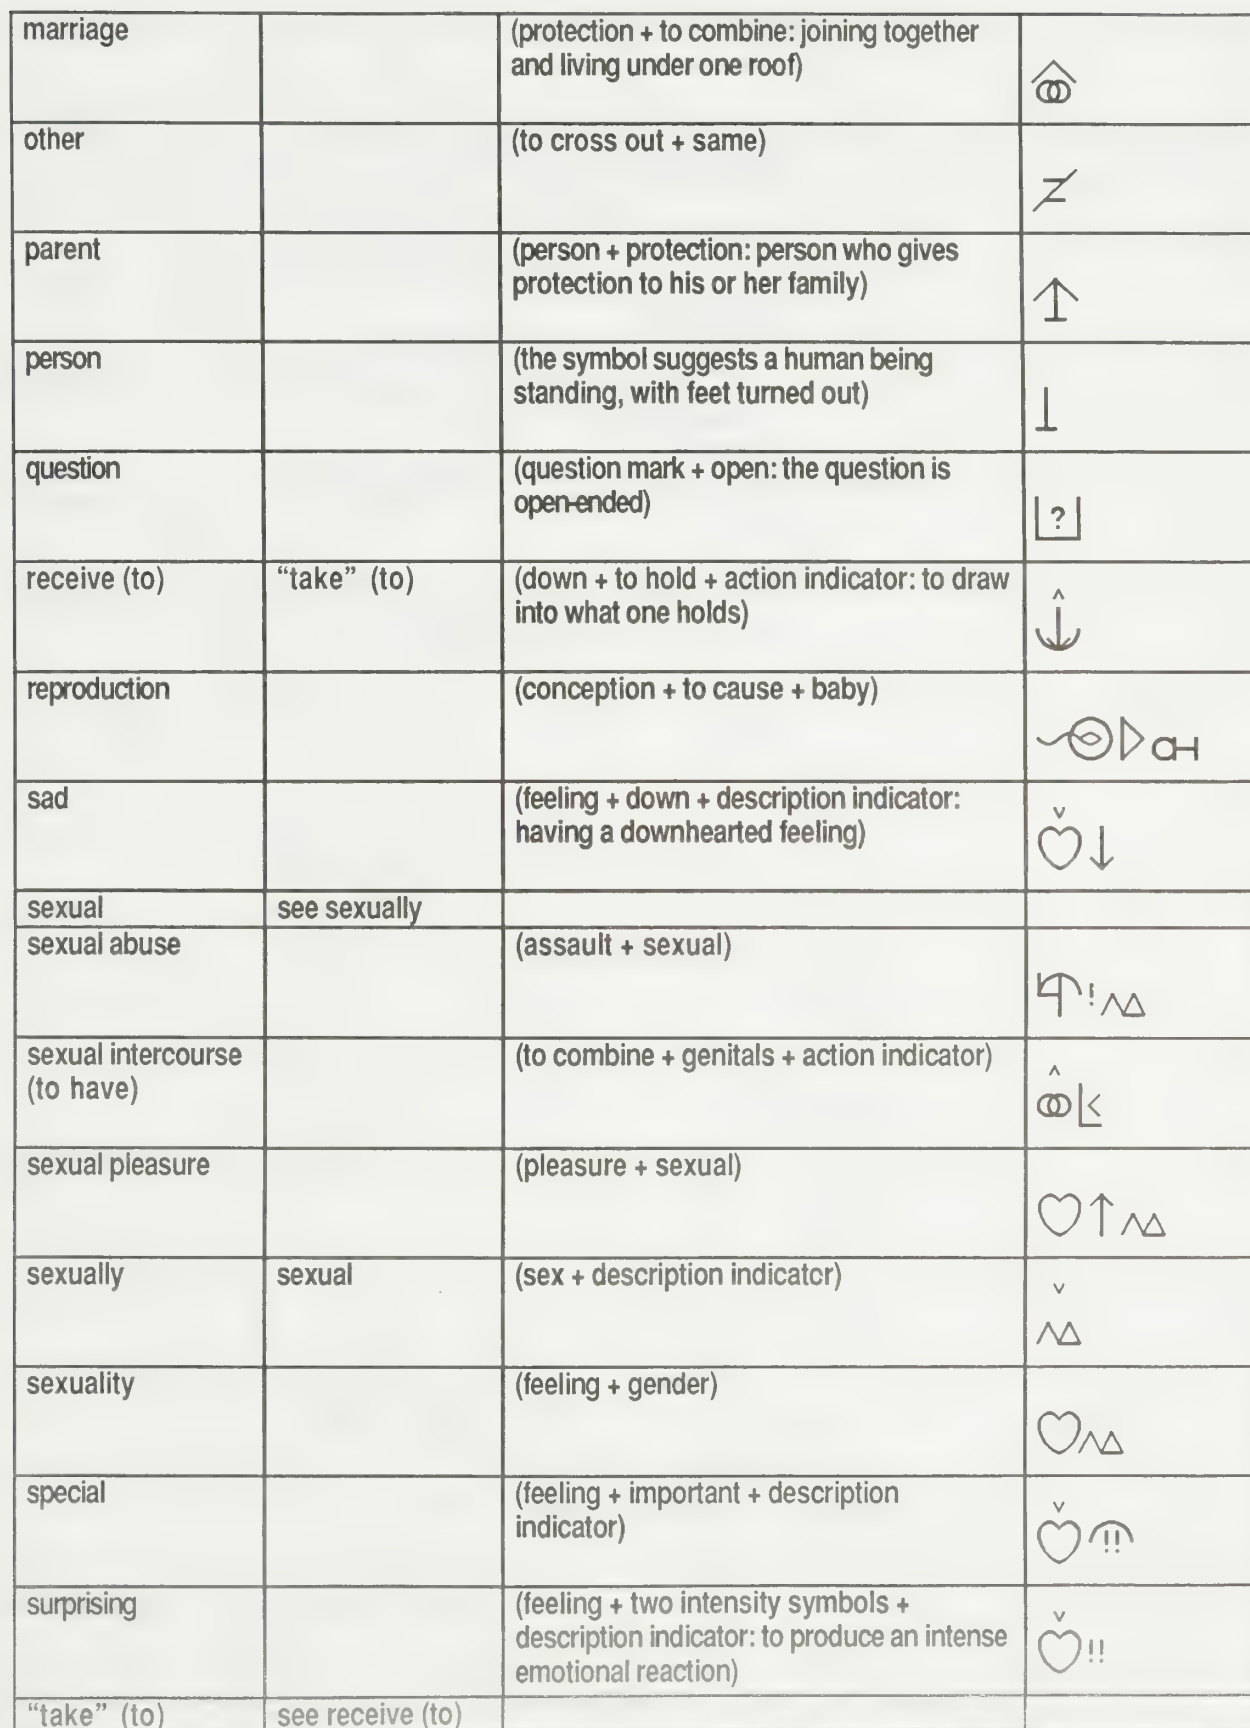 marriage
(protection + to combine: joining together
and living under one roof)
other
(to cross out + same)
parent
(person + protection: person who gives
protection to his or her family)
person
(the symbol suggests a human being
standing, with feet turned out)
question
(question mark + open: the question is
open-ended)
?
receive (to)
“take” (to)
(down + to hold + action indicator: to draw
into what one holds)
reproduction
(conception + to cause + baby)
sad
(feeling + down + description indicator:
having a downhearted feeling)
sexual
see sexually
sexual abuse
(assault + sexual)
!
sexual intercourse
(to have)
(to combine + genitals + action indicator)
sexual pleasure
(pleasure + sexual)
sexually
sexual
(sex + description indicator)
sexuality
(feeling + gender)
special
(feeling + important + description
indicator)
!!
surprising
(feeling + two intensity symbols +
description indicator: to produce an intense
emotional reaction)
!!
“take” (to)
see receive (to)